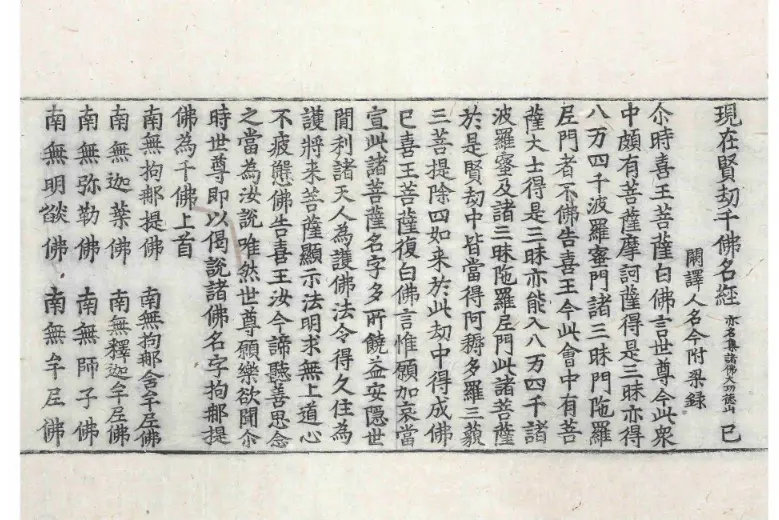 現在賢劫千佛名經 亦名集諸佛大功德山 巳
闕譯人名今附梁録
尒時喜王菩薩白佛言世尊今此衆
中頗有菩薩摩訶薩得是三昧亦得
八万四千波羅蜜門諸三昧門陁羅
尼門者不佛告喜王今此會中有菩
薩大士得是三昧亦能入八万四千諸
波羅蜜及諸三昧陁羅尼門此諸菩薩
於是賢劫中皆當得阿耨多羅三藐
三菩提除四如来於此劫中得成佛
巳喜王菩薩復白佛言惟願加哀當
宣此諸菩薩名字多所饒益安隱世
間利諸天人為護佛法令得久住為
護將来菩薩顯示法明求無上道心
不疲懈佛告喜王汝今諦聽善思念
之當為汝說唯然世尊願樂欲聞尒
時世尊即以偈說諸佛名字拘那提
佛為千佛上首
南無拘那提佛 南無拘那含牟尼佛
南無迦葉佛 南無釋迦牟尼佛
南無弥勒佛 南無師子佛
南無明燄佛 南無牟尼佛